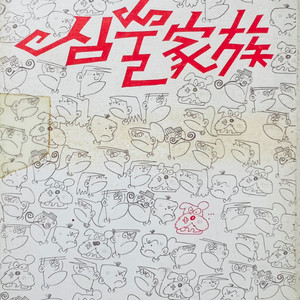 심술家族